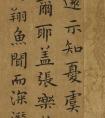 示知憂虞
爾耶蓋張樂
翔魚聞而深